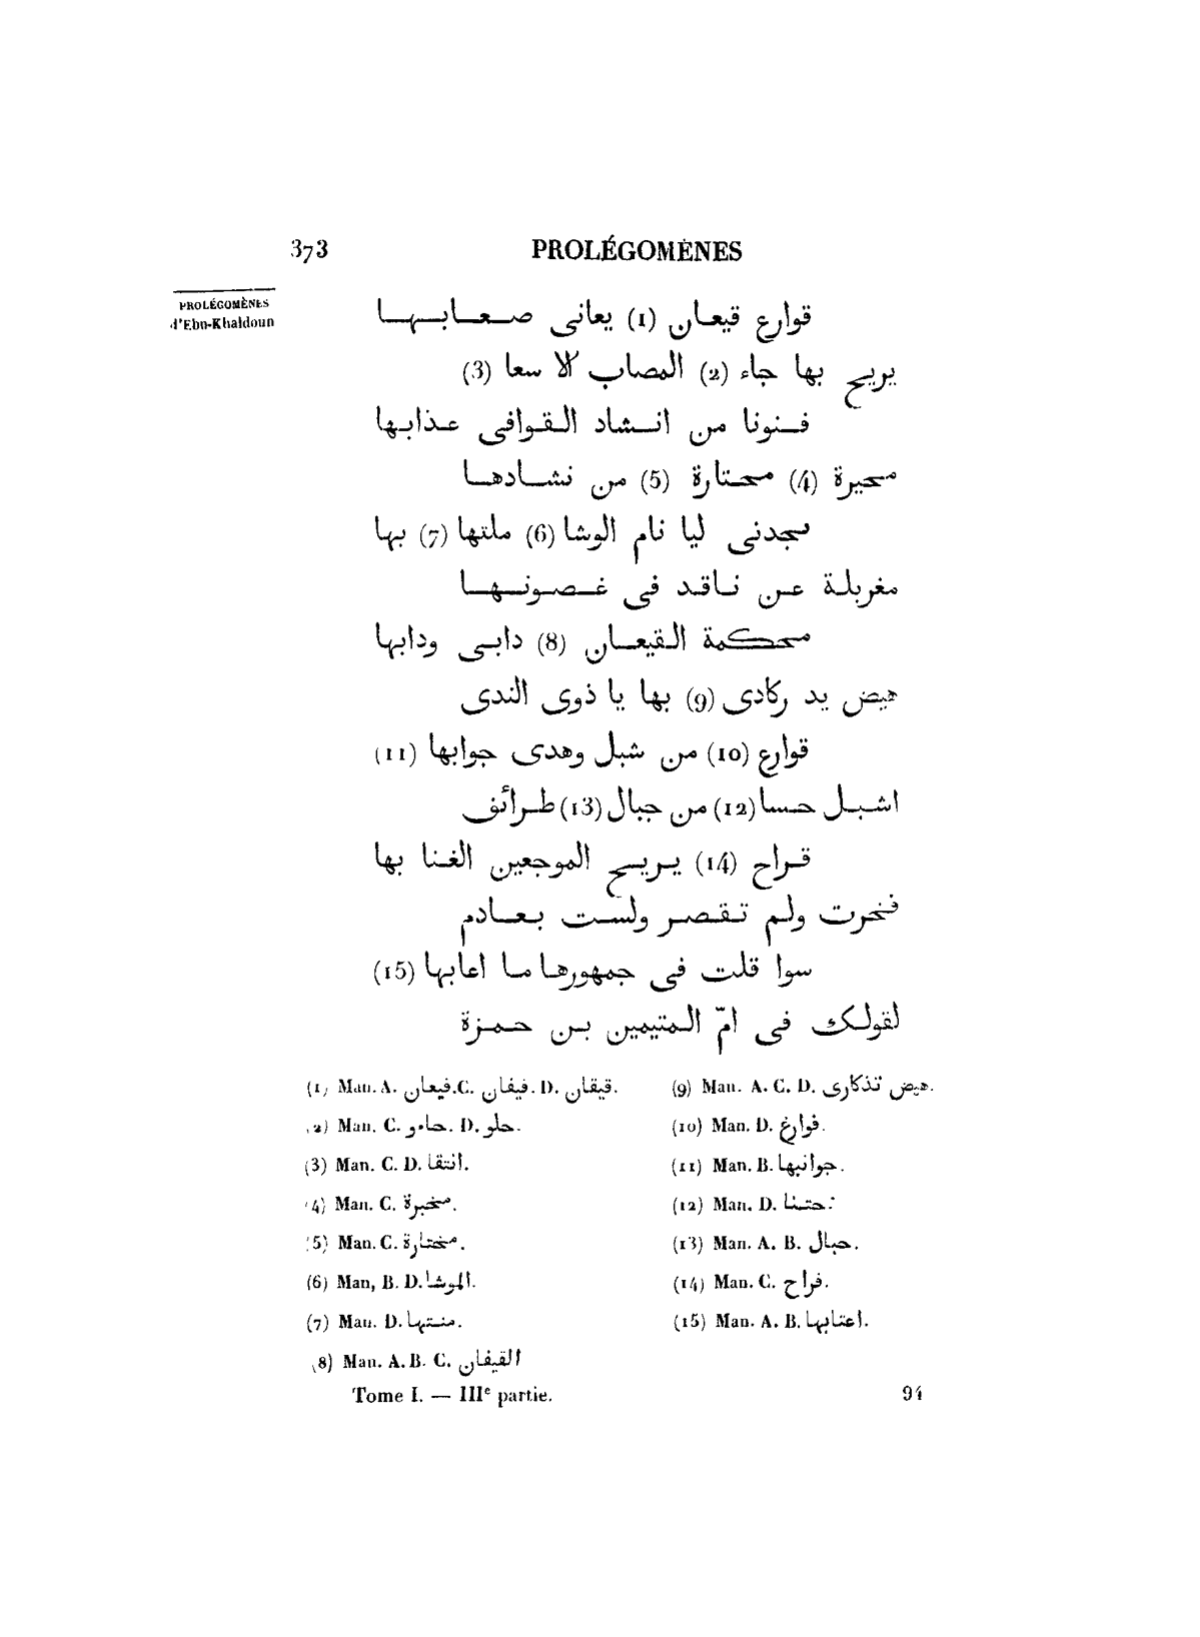 373 PROLÉGOMÈNES
PROLÉGOMÈNES
d'Ebn-Khaldoun
قوارع قيعان (1) يعانى صعابها
يريح بها جاء (2) المصاب كلا سعا (3)
فنونا من انشاد القوافى عذابها
محيرة (4) محتارة (5) من نشادها
تجدنى ليا نام الوشا (6) ملتها (7) بها
مغربلة عن ناقد فى غصونها
محكمة القيعان (8) دابى ودابها
هيض يد ركادى (9) بها يا ذوى الندى
قوارع (10) من شبل وهدى جوابها (11)
اشبل حسا (12) من جبال (13) طرائف
قراح (14) يريح الموجعين الغنا بها
فخرت ولم تقصر ولست بعادم
سوا قلت فى جمهورها ما اعابها (15)
لقولك فى امّ المتيمين بن حمزة
(1) Man. A. فيعان. C. فيفان. D. قيقان.
(2) Man. C. حاءو. D. حلو.
(3) Man. C. D. انتقا.
(4) Man. C. مخبرة.
(5) Man. C. مختارة.
(6) Man. B. D. الموشا.
(7) Man. D. منتها.
(8) Man. A. B. C. القيفان
(9) Man. A. C. D. هيض تذكارى.
(10) Man. D. فوارغ.
(11) Man. B. جوانبها.
(12) Man. D. حتنا.
(13) Man. A. B. حبال.
(14) Man. C. فراح.
(15) Man. A. B. اعتابها.
Tome I. — IIIe partie. 94